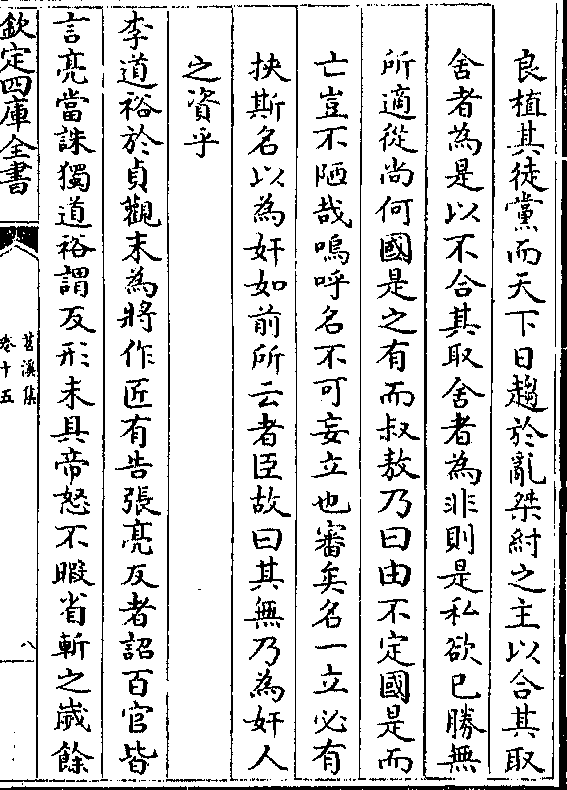 良植其徒黨而天下日趨於亂桀紂之主以合其取
舍者為是以不合其取舍者為非則是私欲已勝無
所適從尚何國是之有而叔敖乃曰由不定國是而
亡豈不陋哉嗚呼名不可妄立也審矣名一立必有
挾斯名以為奸如前所云者臣故曰其無乃為奸人
之資乎
李道裕於貞觀末為將作匠有告張亮反者詔百官皆
言亮當誅獨道裕謂反形未具帝怒不暇省斬之歲餘
欽定四庫全書
苕溪集
卷十五
八